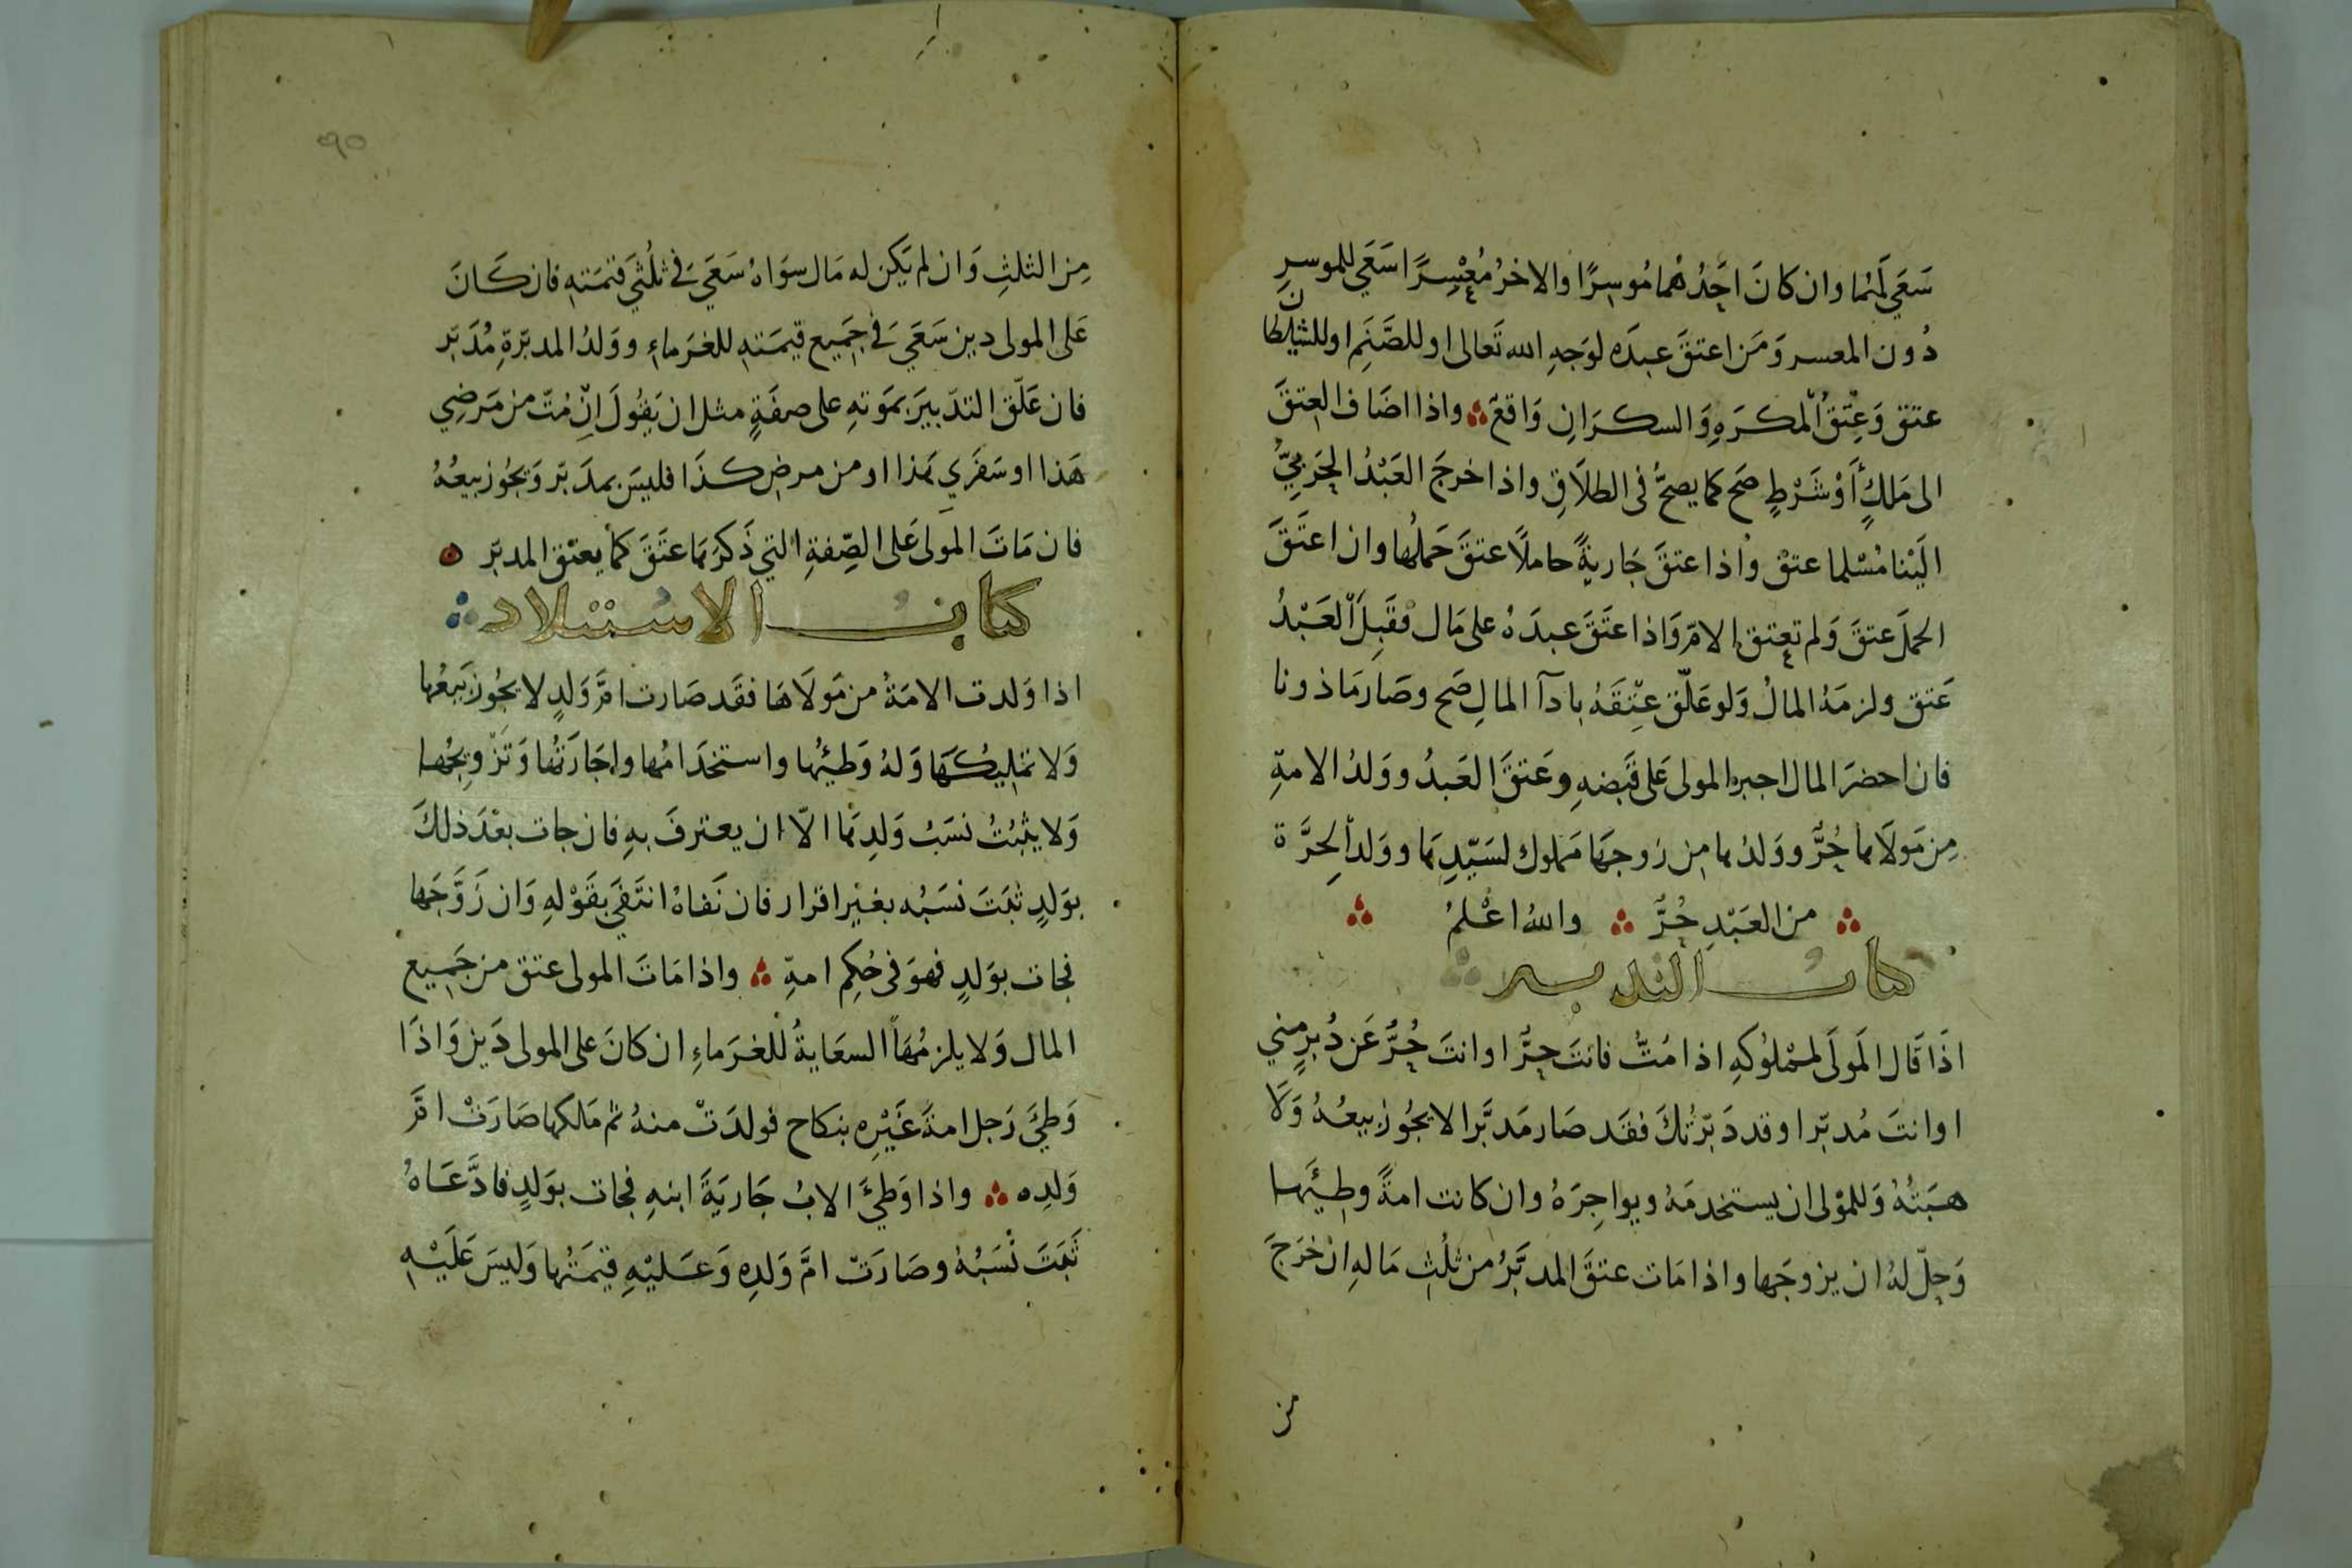 سَعَي لَهُمَا وان كانَ احَدُهُما مُوسِرًا والاخرُ مُعْسِرًا سَعَي للموسرِ
دُون المعسر وَمَن اعتقَ عبدَه لوَجهِ الله تَعالى او للصَّنَمِ او للشيطان
عتق وَعِتْقُ الْمكرَهِ وَالسكرَانِ وَاقعٌ واذا اضَاف العِتقَ
الى مَلكٍ أَوْ شَرْطٍ صَح كما يصحُّ فى الطلَاقِ واذا خرجَ العَبْدُ الحَربيُّ
الَيْنا مُسْلما عتقْ واذا عتقَ جَاريةً حاملًا عتقَ حَملُها وان اعتَقَ
الحملَ عتقَ وَلم تعتق الامّ وَاذا عتَقَ عبدَهُ على مَال فقَبِلَ الْعَبْدُ
عَتق ولزمَهُ المالُ وَلو عَلّق عِتْقَهُ بادآ المالِ صَح وصَار مَاذونا
فان احضرَ المال اجبره المولى عَلى قَبضهِ وعَتقَ العَبدُ وولدُ الامةِ
مِن مَولَاها حُرٌّ وولدُها مِن زوجهَا مَملوك لسَيّدِهَا وولدُ الحِرَّة
من العَبْدِ حُرٌّ واللهُ اعْلمُ
كتابُ التدبير
اذَا قَال المَولَى لمَمْلُوكهِ اذا مُتُّ فانتَ حرٌّ او انتَ حُرٌّ عَن دُبرٍ مِني
او انتَ مُدبّر او قد دَبّرْتُكَ فقَد صَار مَدبَّرا لا يجُوز بيعُهُ وَلَا
هبَتُهُ وَللمَوْلى ان يستخدمَهُ ويواجِرَهُ وان كانت امةً وطِيَها
وَحِلّ لهُ ان يزوجَها واذا مَات عتقَ المدبَّرُ من ثلُثِ مَالهِ ان خرَجَ
من
٩٥
مِن الثلثِ وَان لم يَكن له مَال سِوَاهُ سَعَيَ فى ثلُثَي قيمَتهِ فان كَانَ
عَلى المولى دين سَعَيَ فى جَميع قيمَتهِ للغرَماءِ ووَلدُ المدبّرةِ مُدَبّر
فان عَلّق التدّبيرَ بمَوتهِ على صفَةٍ مثل ان يَقُولَ اِنْ مُتّ من مَرضِي
هَذا او سَفَري هَذا او من مرضِ كذَا فليسَ بمدَبّر وَيجُوز بيعُهُ
فان مَاتَ المولى عَلى الصِّفةِ التي ذَكرَها عتَقَ كمَا يعتْق المدبّر
كتابُ الاستيلاد
اذا وَلدت الامَةُ من مَولَاهَا فقَد صَارت امَّ وَلدٍ لا يجُوز بَيعُها
وَلا تمليكَها وَلهُ وَطيُها واستخدَامُها واجَارَتُها وَتَزْويجُها
وَلا يثبُتُ نسَبُ وَلدِهَا الّا ان يعترفَ بهِ فان جات بعْدَ ذلكَ
بوَلدٍ ثبَتَ نسَبُه بغيْر اقرار فان نَفاهُ انتَفَي بقَوْلهِ وَان زَوَّجَها
فجات بوَلدٍ فهوَ فى حُكمِ امهِ واذا مَاتَ المولى عتق من جَميع
المال وَلا يلزمُهَا السعَايةُ للغرَماءِ ان كانَ على المولى دَين وَاذَا
وَطيَ رَجل امةَ غَيْرِه بنكاح فولدَتْ منهُ ثم مَلكها صَارَتْ امَّ
وَلدِه واذا وَطيَ الابُ جَاريَةَ ابنهِ فجات بوَلدٍ فادَّعَاهُ
ثَبَتَ نَسَبُهُ وصَارَتْ امَّ وَلدِه وَعَليْهِ قيمَتُها وَليسَ عَلَيْهِ